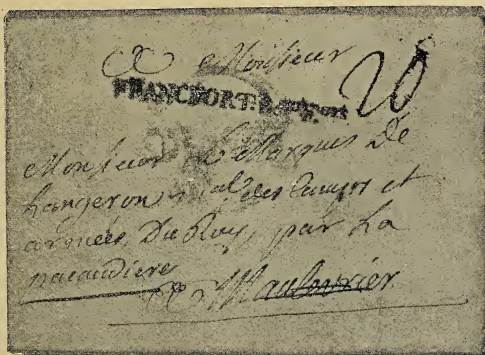 A Monsieur
FRANCFORT 20
Monsieur Le Marquis De
Langeron m.al des Camps et
armées Du Roy, par La
pacaudiere
A Maulevrier